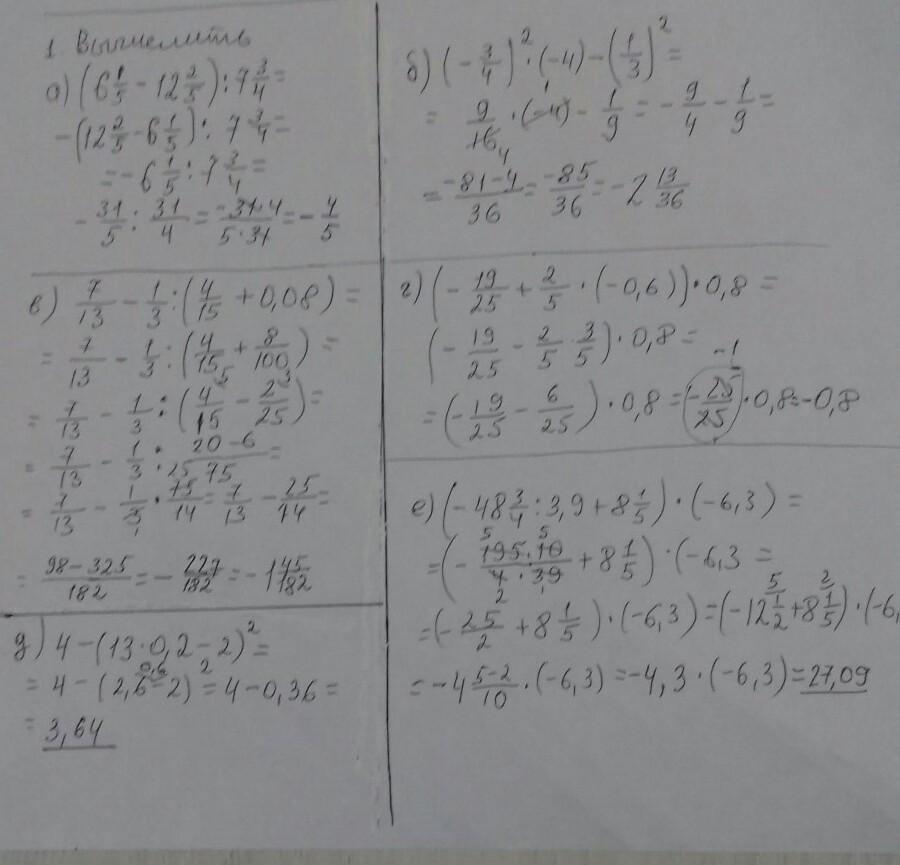 1. Вычислить
а) (6 1/5 - 12 2/5) : 7 3/4 =
-(12 2/5 - 6 1/5) : 7 3/4 =
= -6 1/5 : 7 3/4 =
- 31/5 : 31/4 = -31·4/5·31 = - 4/5
б) (- 3/4)² · (-4) - (1/3)² =
= 9/16 · (-4) - 1/9 = - 9/4 - 1/9 =
= -81-4/36 = -85/36 = -2 13/36
в) 7/13 - 1/3 : (4/15 + 0,08) =
= 7/13 - 1/3 : (4/15 + 8/100) =
= 7/13 - 1/3 : (4/15 - 2/25) =
= 7/13 - 1/3 : 20-6/75 =
= 7/13 - 1/3 · 75/14 = 7/13 - 25/14 =
= 98-325/182 = - 227/182 = -1 45/182
г) (- 19/25 + 2/5 · (-0,6)) · 0,8 =
(- 19/25 - 2/5 · 3/5) · 0,8 =
= (- 19/25 - 6/25) · 0,8 = (- 25/25) · 0,8 = -0,8
д) 4 - (13·0,2-2)² =
= 4 - (2,6-2)² = 4 - 0,36 =
= 3,64
е) (-48 3/4 : 3,9 + 8 1/5) · (-6,3) =
= (- 195·10/4·39 + 8 1/5) · (-6,3 =
= (- 25/2 + 8 1/5) · (-6,3) = (-12 1/2 + 8 1/5) · (-6,
= -4 5-2/10 · (-6,3) = -4,3 · (-6,3) = 27,09